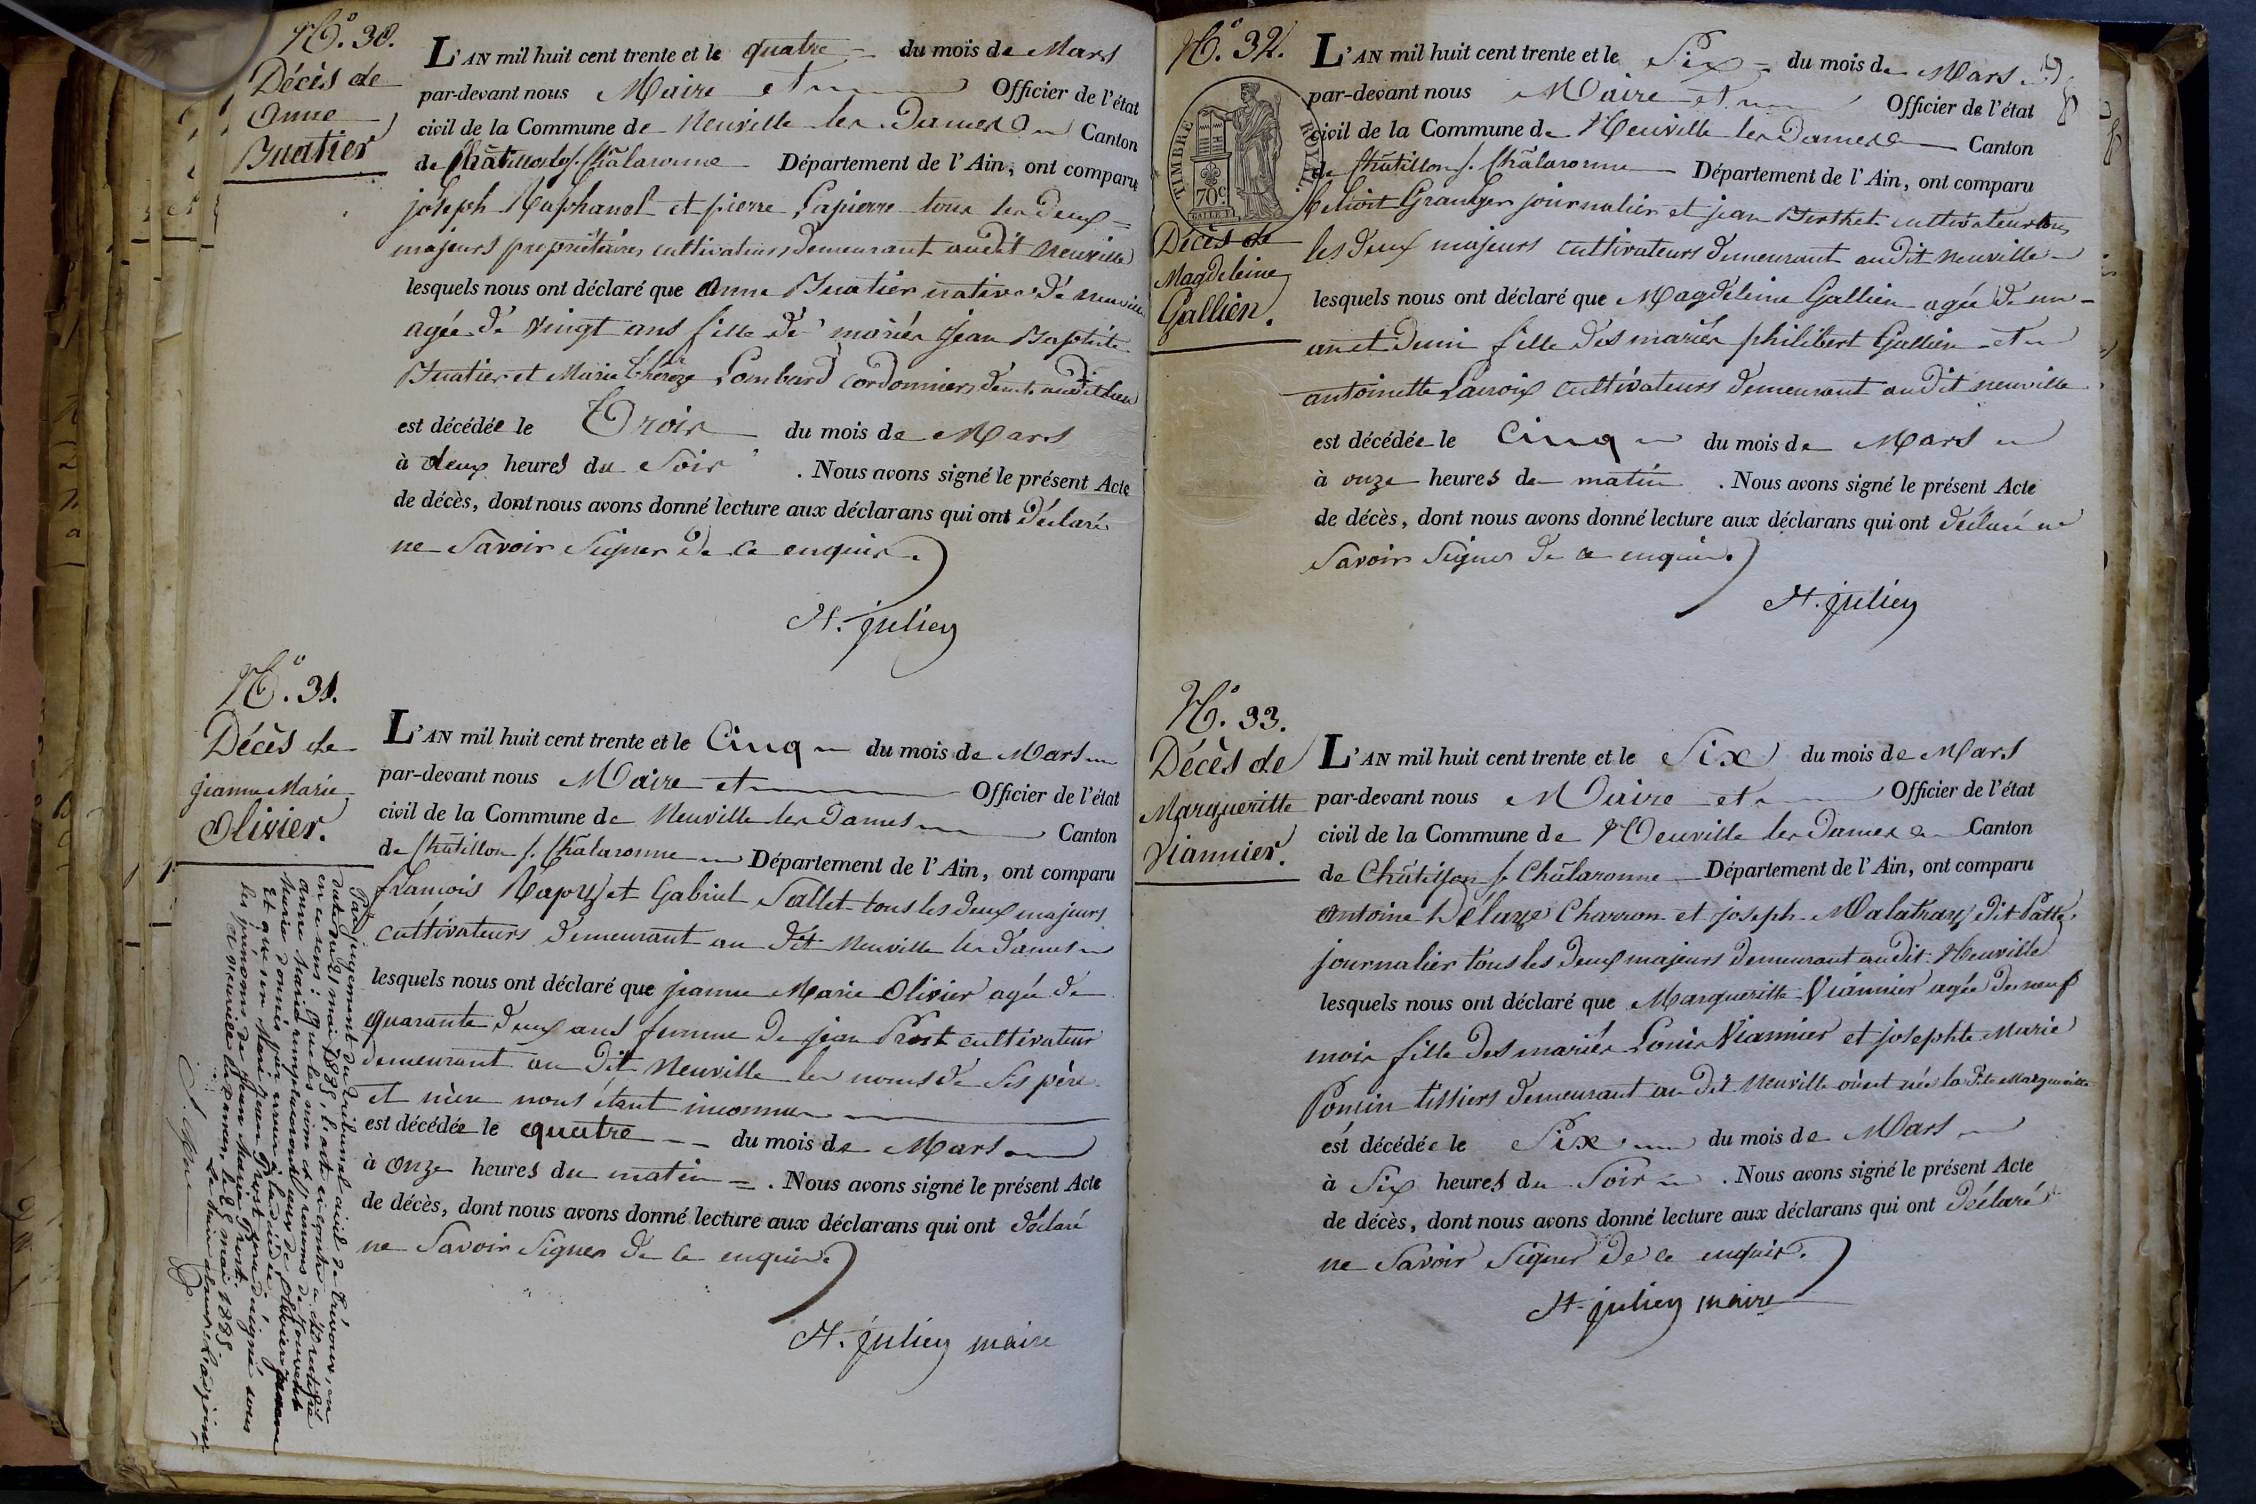 N.º 30.
Décès de
Anne
Buatier
L'AN mil huit cent trente et le quatre du mois de Mars
par-devant nous Maire et Officier de l'état
civil de la Commune de Neuville les Dames Canton
de Châtillon s. Châlaronne Département de l'Ain, ont comparu
joseph Raphanel et pierre Lapierre tous les deux
majeurs propriétaires cultivateurs demeurant audit neuville
lesquels nous ont déclaré que Anne Buatier native de neuville
agée de vingt ans fille de mariés jean Baptiste
Buatier et Marie Thérèze Lombard cordonniers demt. audit lieu
est décédée le Trois du mois de Mars
à deux heures du Soir . Nous avons signé le présent Acte
de décès, dont nous avons donné lecture aux déclarans qui ont déclaré
ne Savoir Signer de ce enquis.
H. julien
N.º 31.
Décès de
jeanne Marie
Olivier.
L'AN mil huit cent trente et le Cinq du mois de Mars
par-devant nous Maire et Officier de l'état
civil de la Commune de Neuville les Dames Canton
de Châtillon s. Châlaronne Département de l'Ain, ont comparu
francois Rapy et Gabriel Sallet tous les deux majeurs
cultivateurs demeurant au dit Neuville les dames
lesquels nous ont déclaré que jeanne Marie Olivier agée de
quarante deux ans femme de jean Prost cultivateur
demeurant au dit Neuville les noms de ses père
et mère nous étant inconnus
est décédée le quatre du mois de Mars
à onze heures du matin . Nous avons signé le présent Acte
de décès, dont nous avons donné lecture aux déclarans qui ont déclaré
ne Savoir Signer de ce enquis.
H. julien maire
Par jugement du tribunal civil de Trévoux, en
date du 21 mai 1885, l'acte ci-contre a été rectifié
en ce sens: Que les nom et prénoms de
anne Marie remplaceront ceux de Olivier jeanne
Marie donnés par erreur à la décédée,
Et que son Mari jean Prost sera désigné sous
les prénoms de Jean Marie Prost.
A Neuville les Dames, le 28 mai 1885.
N.º 32.
TIMBRE ROYAL.
70c.
Décès de
Magdeleine
Gallien.
L'AN mil huit cent trente et le Six du mois de Mars
par-devant nous Maire et Officier de l'état
civil de la Commune de Neuville les Dames Canton
de Châtillon s. Châlaronne Département de l'Ain, ont comparu
Benoit Granger journalier et jean Berthet cultivateur tous
les deux majeurs cultivateurs demeurant audit neuville
lesquels nous ont déclaré que Magdeleine Gallien agée de un
an et demi fille des mariés philibert Gallien et
antoinette Lacroix cultivateurs demeurant audit neuville
est décédée le Cinq du mois de Mars
à onze heures du matin . Nous avons signé le présent Acte
de décès, dont nous avons donné lecture aux déclarans qui ont déclaré ne
Savoir Signer de ce enquis.
H. julien
N.º 33.
Décès de
Marguerite
Viannier.
L'AN mil huit cent trente et le Six du mois de Mars
par-devant nous Maire et Officier de l'état
civil de la Commune de Neuville les Dames Canton
de Châtillon s. Châlaronne Département de l'Ain, ont comparu
Antoine Délaye Charron et joseph Malatray dit Patte
journalier tous les deux majeurs demeurant audit Neuville
lesquels nous ont déclaré que Marguerite Viannier agée de neuf
mois fille des mariés Louis Viannier et josephte Marie
Poncin tissiers demeurant au dit Neuville où est née la dite Marguerite
est décédée le Six du mois de Mars
à Six heures du Soir . Nous avons signé le présent Acte
de décès, dont nous avons donné lecture aux déclarans qui ont Déclaré
ne Savoir Signer de ce enquis.
H. julien maire